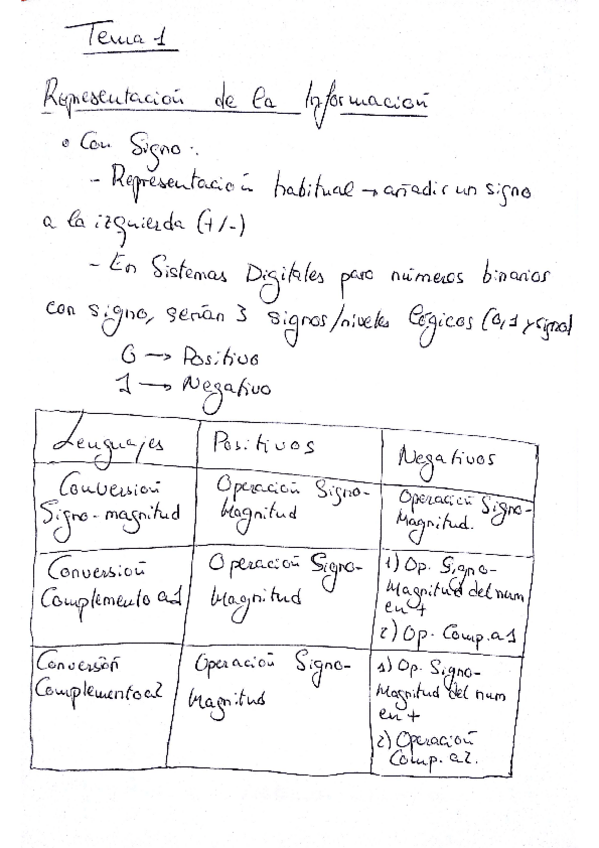 Tema 1
Representación de la Información
• Con Signo:
- Representación habitual → añadir un signo
a la izquierda (+/-)
- En Sistemas Digitales para números binarios
con signo, serían 3 signos/niveles lógicos (0,1 y signo)
0 → Positivo
1 → Negativo
Lenguajes
Positivos
Negativos
Conversión
Signo-magnitud
Operación Signo-
Magnitud
Operación Signo-
Magnitud.
Conversión
Complemento a1
Operación Signo-
Magnitud
1) Op. Signo-
Magnitud del num
en +
2) Op. Comp. a1
Conversión
Complemento a2
Operación Signo-
Magnitud
1) Op. Signo-
Magnitud del num
en +
2) Operación
Comp. a2.